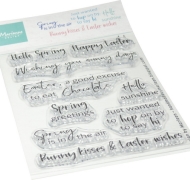 Hello Spring Happy Easter
Wishing you sunny days
Easter a good excuse
to eat Chocolate
Hello
sunshine
Spring
greetings
Just wanted
to hop on by
to say hi
Spring
is in the air
Bunny kisses & Easter wishes